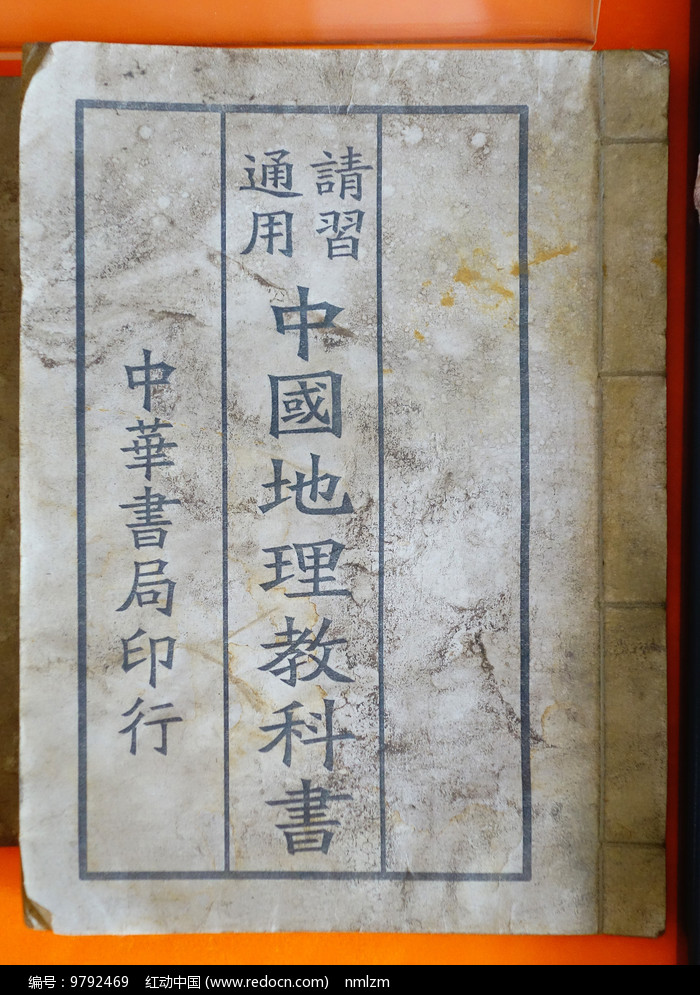 請習
通用
中國地理教科書
中華書局印行
编号：9792469 红动中国 (www.redocn.com) nmlzm